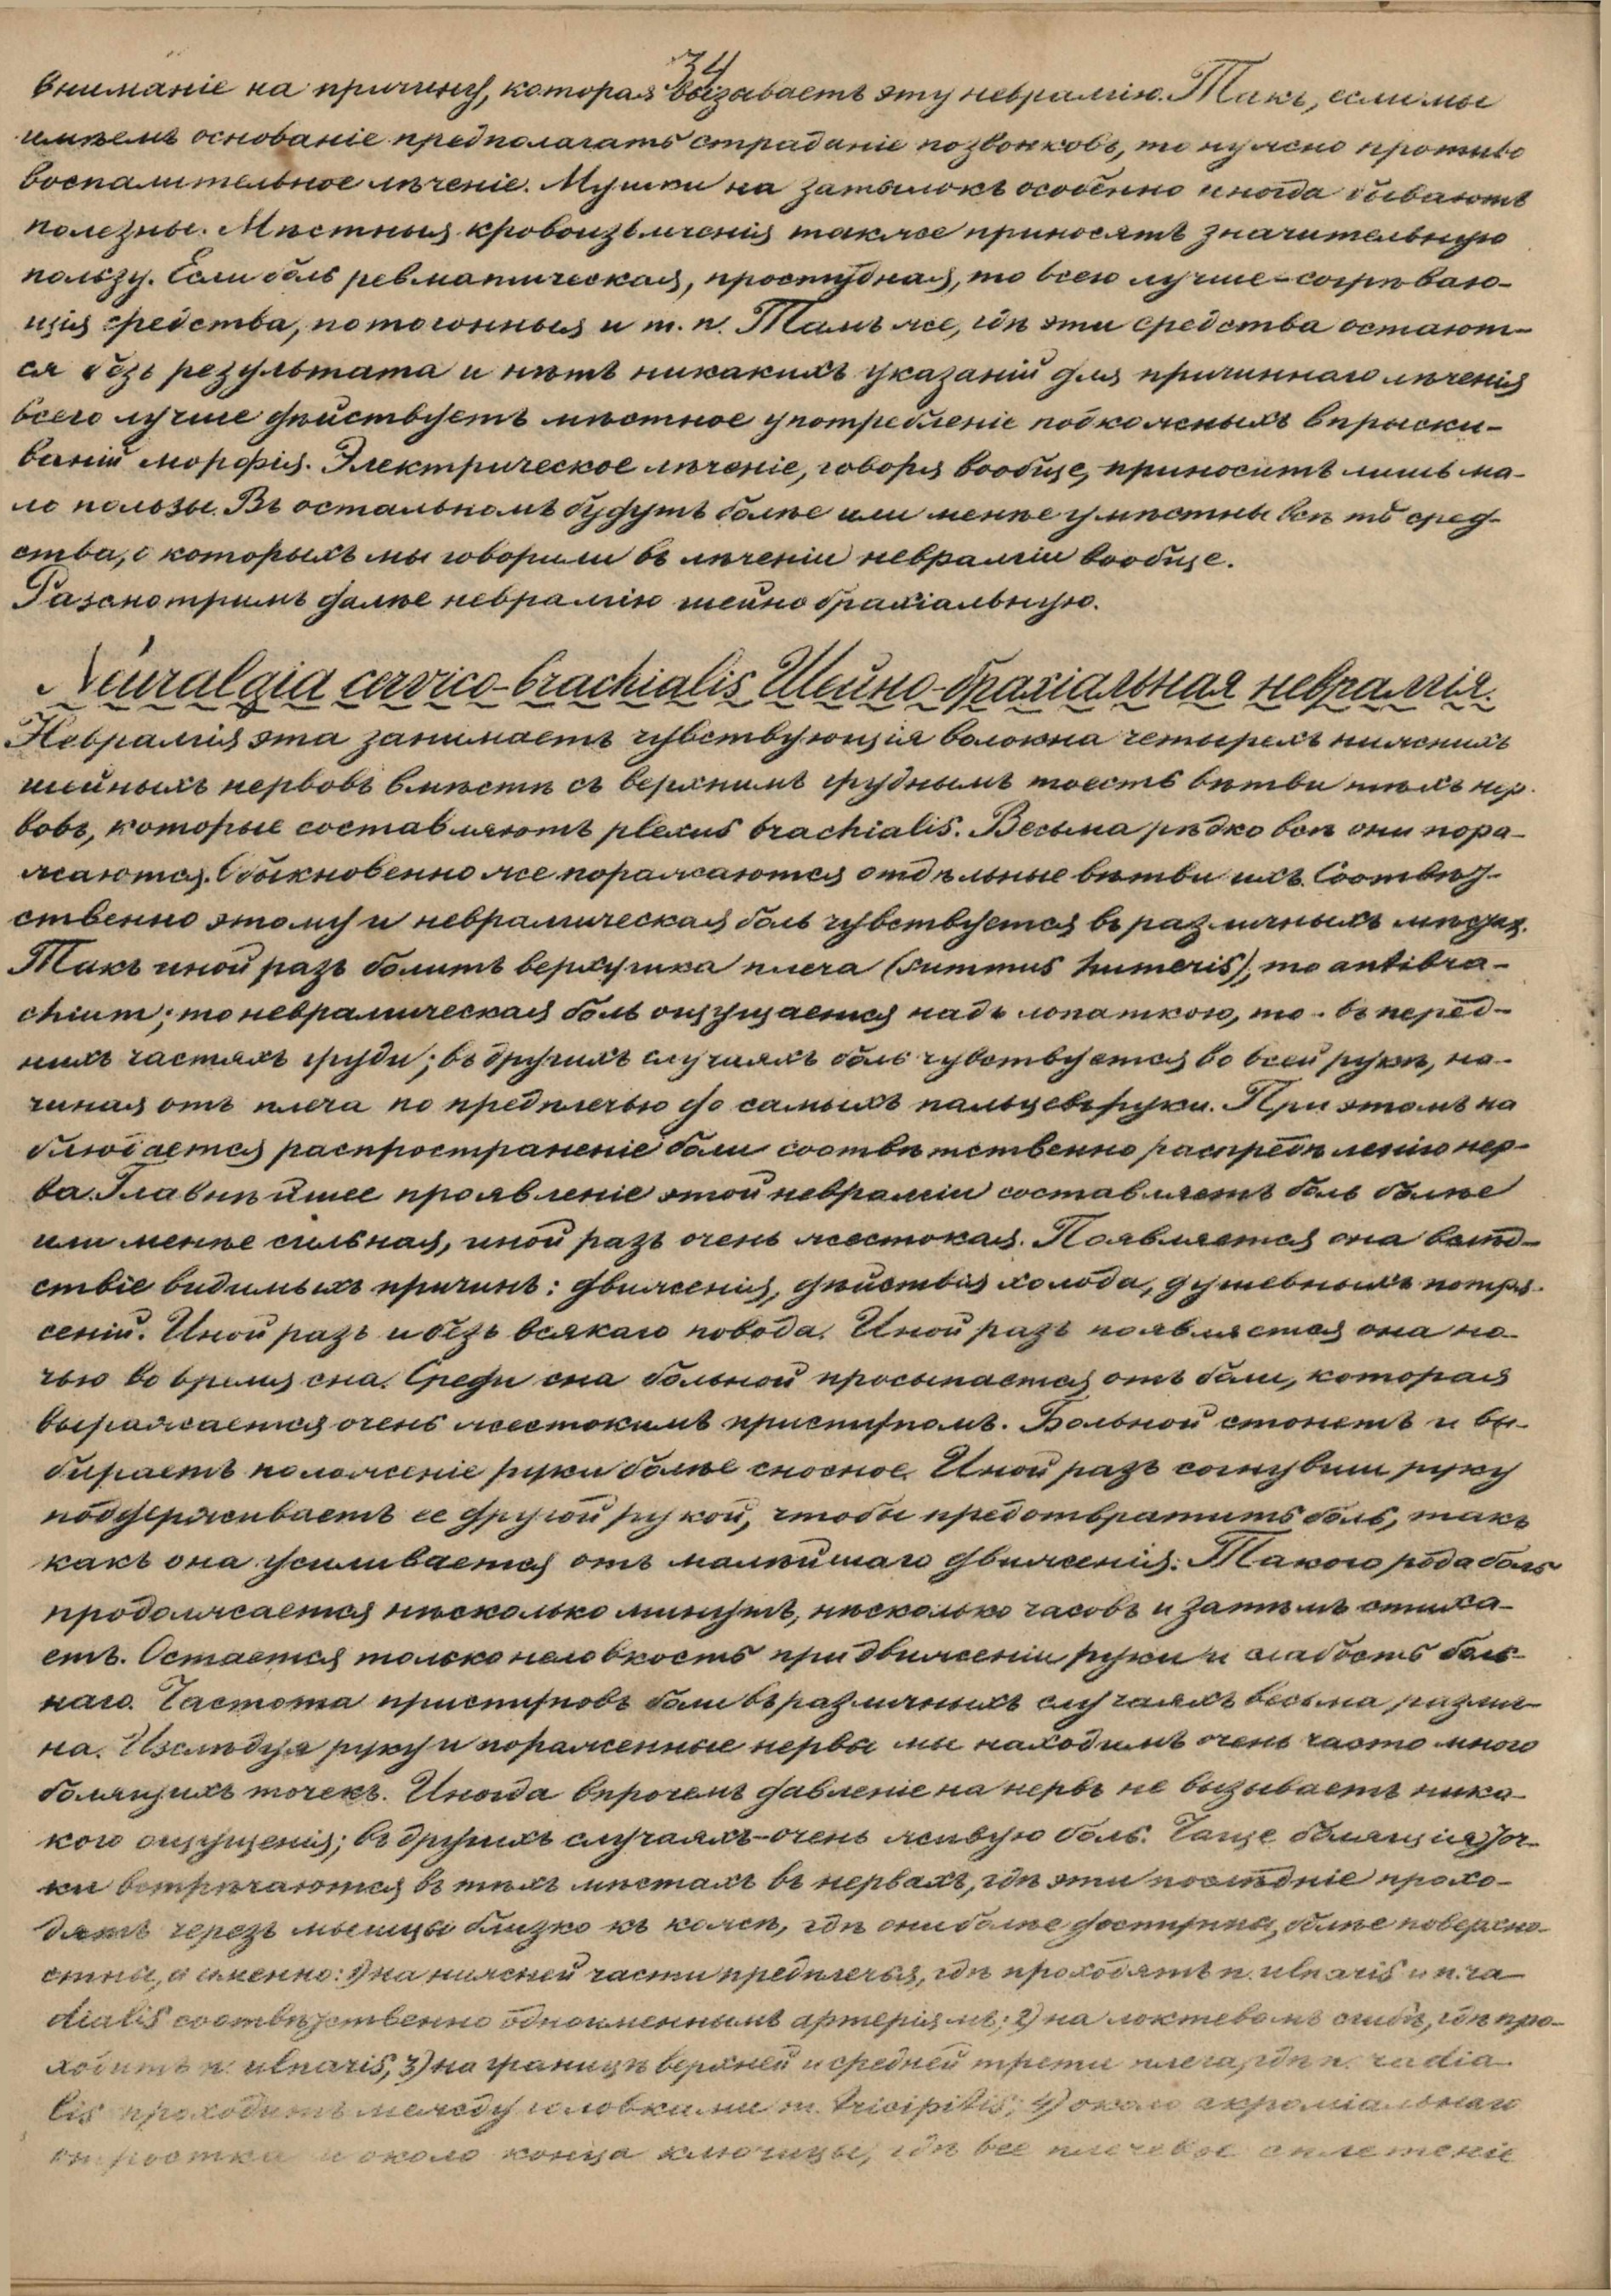 34
вниманіе на причину, которая вызаваетъ эту невралгію. Такъ, если мы
имѣемъ основаніе предполагать страданіе позвонковъ, то нужно противо
воспалительное лѣченіе. Мушки на затылокъ особенно иногда бываютъ
полезны. Мѣстныя кровоизвлеченія также приносятъ значительную
пользу. Если боль ревматическая, простудная, то всего лучше - согрѣваю-
щія средства, потогонныя и т. п. Тамъ же, гдѣ эти средства остают-
ся безъ результата и нѣтъ никакихъ указаній для причиннаго лѣченія
всего лучше дѣйствуетъ мѣстное употребленіе подкожныхъ впрыски-
ваній морфія. Электрическое лѣченіе, говоря вообще, приноситъ лишь ма-
ло пользы. Въ остальномъ будутъ болѣе или менѣе умѣстны всѣ тѣ сред-
ства, о которыхъ мы говорили въ лѣченіи невралгіи вообще.
Разсмотримъ далѣе невралгію шейно брахіальную.
Neuralgia cervico-brachialis Шейно-брахіальная невралгія.
Невралгія эта занимаетъ чувствующія волокна четырехъ нижнихъ
шейныхъ нервовъ вмѣстѣ съ верхнимъ груднымъ тоесть вѣтви тѣхъ нер-
вовъ, которые составляютъ plexus brachialis. Весьма рѣдко всѣ они пора-
жаются. Обыкновенно же поражаются отдѣльные вѣтви ихъ. Соотвѣт-
ственно этому и невралгическая боль чувствуется въ различныхъ мѣстах.
Такъ иной разъ болитъ верхушка плеча (summus humeris), то antibra-
chium; то невралгическая боль ощущается надъ лопаткою, то - въ перед-
нихъ частяхъ груди; въ другихъ случаяхъ боль чувствуется во всей рукѣ, на-
чиная отъ плеча по предплечью до самыхъ пальцевъ руки. При этомъ на
блюдается распространеніе боли соотвѣтственно распредѣленію нер-
ва. Главнѣйшее проявленіе этой невралгіи составляетъ боль болѣе
или менѣе сильная, иной разъ очень жестокая. Появляется она вслѣд-
ствіе видимыхъ причинъ: движенія, дѣйствія холода, душевныхъ потря-
сеній. Иной разъ и безъ всякаго повода. Иной разъ появляется она но-
чью во время сна. Среди сна больной просыпается отъ боли, которая
выражается очень жестокимъ приступомъ. Больной стонетъ и вы-
бираетъ положеніе руки болѣе сносное. Иной разъ согнувши руку
поддерживаетъ ее другой рукой, чтобы предотвратить боль, такъ
какъ она усиливается отъ малѣйшаго движенія. Такого рода боль
продолжается нѣсколько минутъ, нѣсколько часовъ и затѣмъ стиха-
етъ. Остается только неловкость при движеніи руки и слабость боль-
наго. Частота приступовъ боли въ различныхъ случаяхъ весьма различ-
на. Изслѣдуя руку и пораженные нервы мы находимъ очень часто много
болящихъ точекъ. Иногда впрочемъ давленіе на нервъ не вызываетъ ника-
кого ощущенія; въ другихъ случаяхъ - очень живую боль. Чаще болящія точ-
ки встрѣчаются въ тѣхъ мѣстахъ въ нервахъ, гдѣ эти послѣдніе прохо-
дятъ черезъ мышцы близко къ кожѣ, гдѣ они болѣе доступны, болѣе поверхно-
стны, а именно: 1) на нижней части предплечья, гдѣ проходятъ n. ulnaris и n. ra-
dialis соотвѣтственно одноименнымъ артеріямъ; 2) на локтевомъ сгибѣ, гдѣ про-
ходитъ n. ulnaris, 3) на границѣ верхней и средней трети плеча, гдѣ n. radia-
lis проходитъ между головками m. tricipitis; 4) около акроміальнаго
отростка и около конца ключицы, гдѣ все плечевое сплетеніе